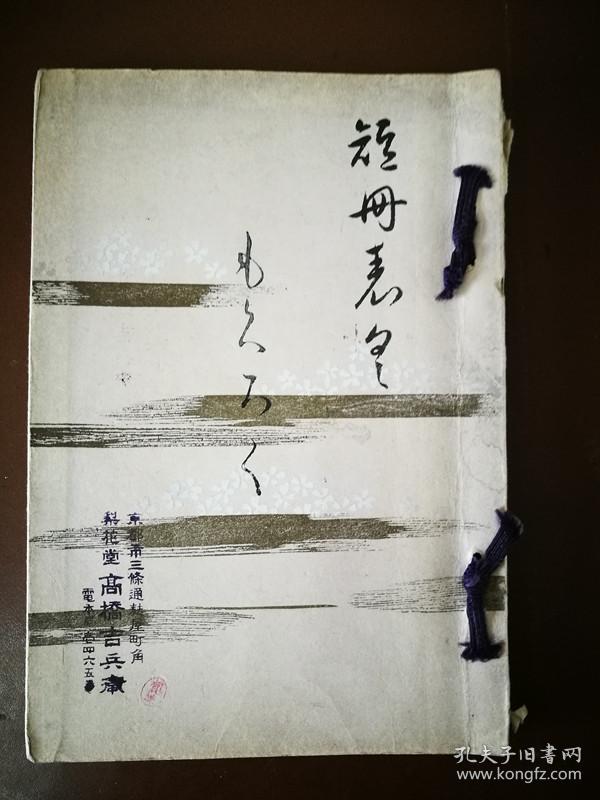 短冊表具
もくろく
京都市三條通麩屋町角
梨花堂 高橋吉兵衛
電本 壱四六五番
孔夫子旧书网
www.kongfz.com